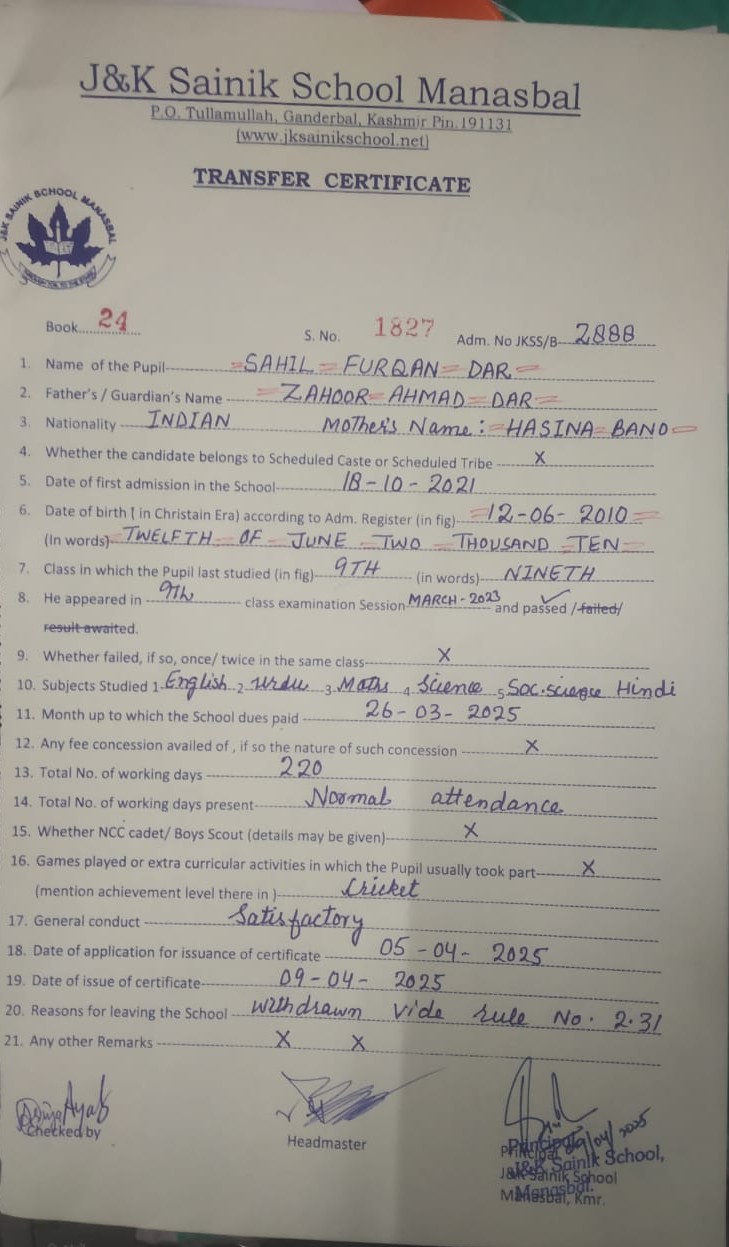 J&K Sainik School Manasbal
P.O. Tullamullah, Ganderbal, Kashmir Pin.191131
(www.jksainikschool.net)
TRANSFER CERTIFICATE
J&K SAINIK SCHOOL MANASBAL
Book 24 S. No. 1827 Adm. No JKSS/B 2888
1. Name of the Pupil SAHIL FURQAN DAR
2. Father's / Guardian's Name ZAHOOR AHMAD DAR
3. Nationality INDIAN Mother's Name: HASINA BANO
4. Whether the candidate belongs to Scheduled Caste or Scheduled Tribe X
5. Date of first admission in the School 18-10-2021
6. Date of birth ( in Christain Era) according to Adm. Register (in fig) 12-06-2010
(In words) TWELFTH OF JUNE TWO THOUSAND TEN
7. Class in which the Pupil last studied (in fig) 9TH (in words) NINETH
8. He appeared in 9th class examination Session MARCH-2023 and passed / failed/
result awaited.
9. Whether failed, if so, once/ twice in the same class X
10. Subjects Studied 1 English 2 Urdu 3 Maths 4 Science 5 Soc.science Hindi
11. Month up to which the School dues paid 26-03-2025
12. Any fee concession availed of , if so the nature of such concession X
13. Total No. of working days 220
14. Total No. of working days present Normal attendance
15. Whether NCC cadet/ Boys Scout (details may be given) X
16. Games played or extra curricular activities in which the Pupil usually took part X
(mention achievement level there in ) Cricket
17. General conduct Satisfactory
18. Date of application for issuance of certificate 05-04-2025
19. Date of issue of certificate 09-04-2025
20. Reasons for leaving the School Withdrawn vide rule No. 2.31
21. Any other Remarks X X
Checked by Headmaster Principal 09/04/2025
J&K Sainik School,
Manasbal.
Principal
J&K Sainik School
Manasbal, Kmr.